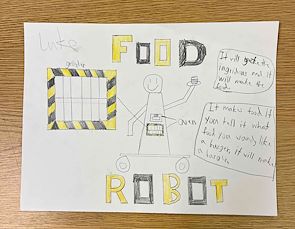 Luke
FOOD
It will get the
ingridians and it
will made the
food.
oven
It makes food If
you tell it what
food you want like
a burger, it will make
a burger.
ROBOT